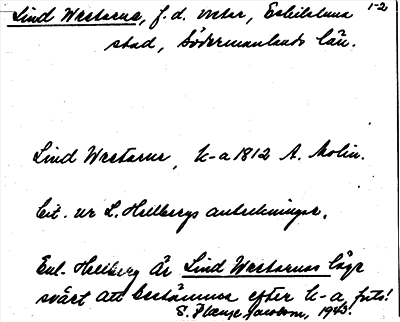 Lind Westerne, f.d. vretar, Eskilstuna 1-2
stad, Södermanlands län.
Lind Westerne, k-a 1812 A. Molin.
Cit. ur L. Hellbergs anteckningar.
Enl. Hellberg är Lind Westernas läge
svårt att bestämma efter k-a, fots!
1943.